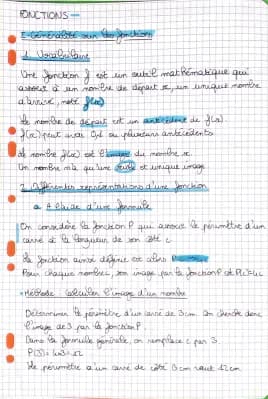 FONCTIONS
I. Généralité sur les fonctions
1. Vocabulaire
Une fonction f est un outil mathématique qui
associe à un nombre de départ x, un unique nombre
d'arrivé, noté f(x)
Le nombre de départ est un antécédent de f(x).
f(x) peut avoir un ou plusieurs antécédents
Le nombre f(x) est l'image du nombre x.
Un nombre n'a qu'une seule et unique image
2. Différentes représentations d'une fonction
a. A l'aide d'une formule
On considère la fonction P qui associe le périmètre d'un
carré à la longueur de son côté c.
La fonction ainsi définie est alors
Pour chaque nombre c, son image par la fonction P est P(c)=4c
Méthode: calculer l'image d'un nombre
Déterminer le périmètre d'un carré de 3cm. On cherche donc
l'image de 3 par la fonction P.
Dans la formule générale, on remplace c par 3.
P(3)=4×3=12
Le périmètre d'un carré de côté 3 cm vaut 12cm